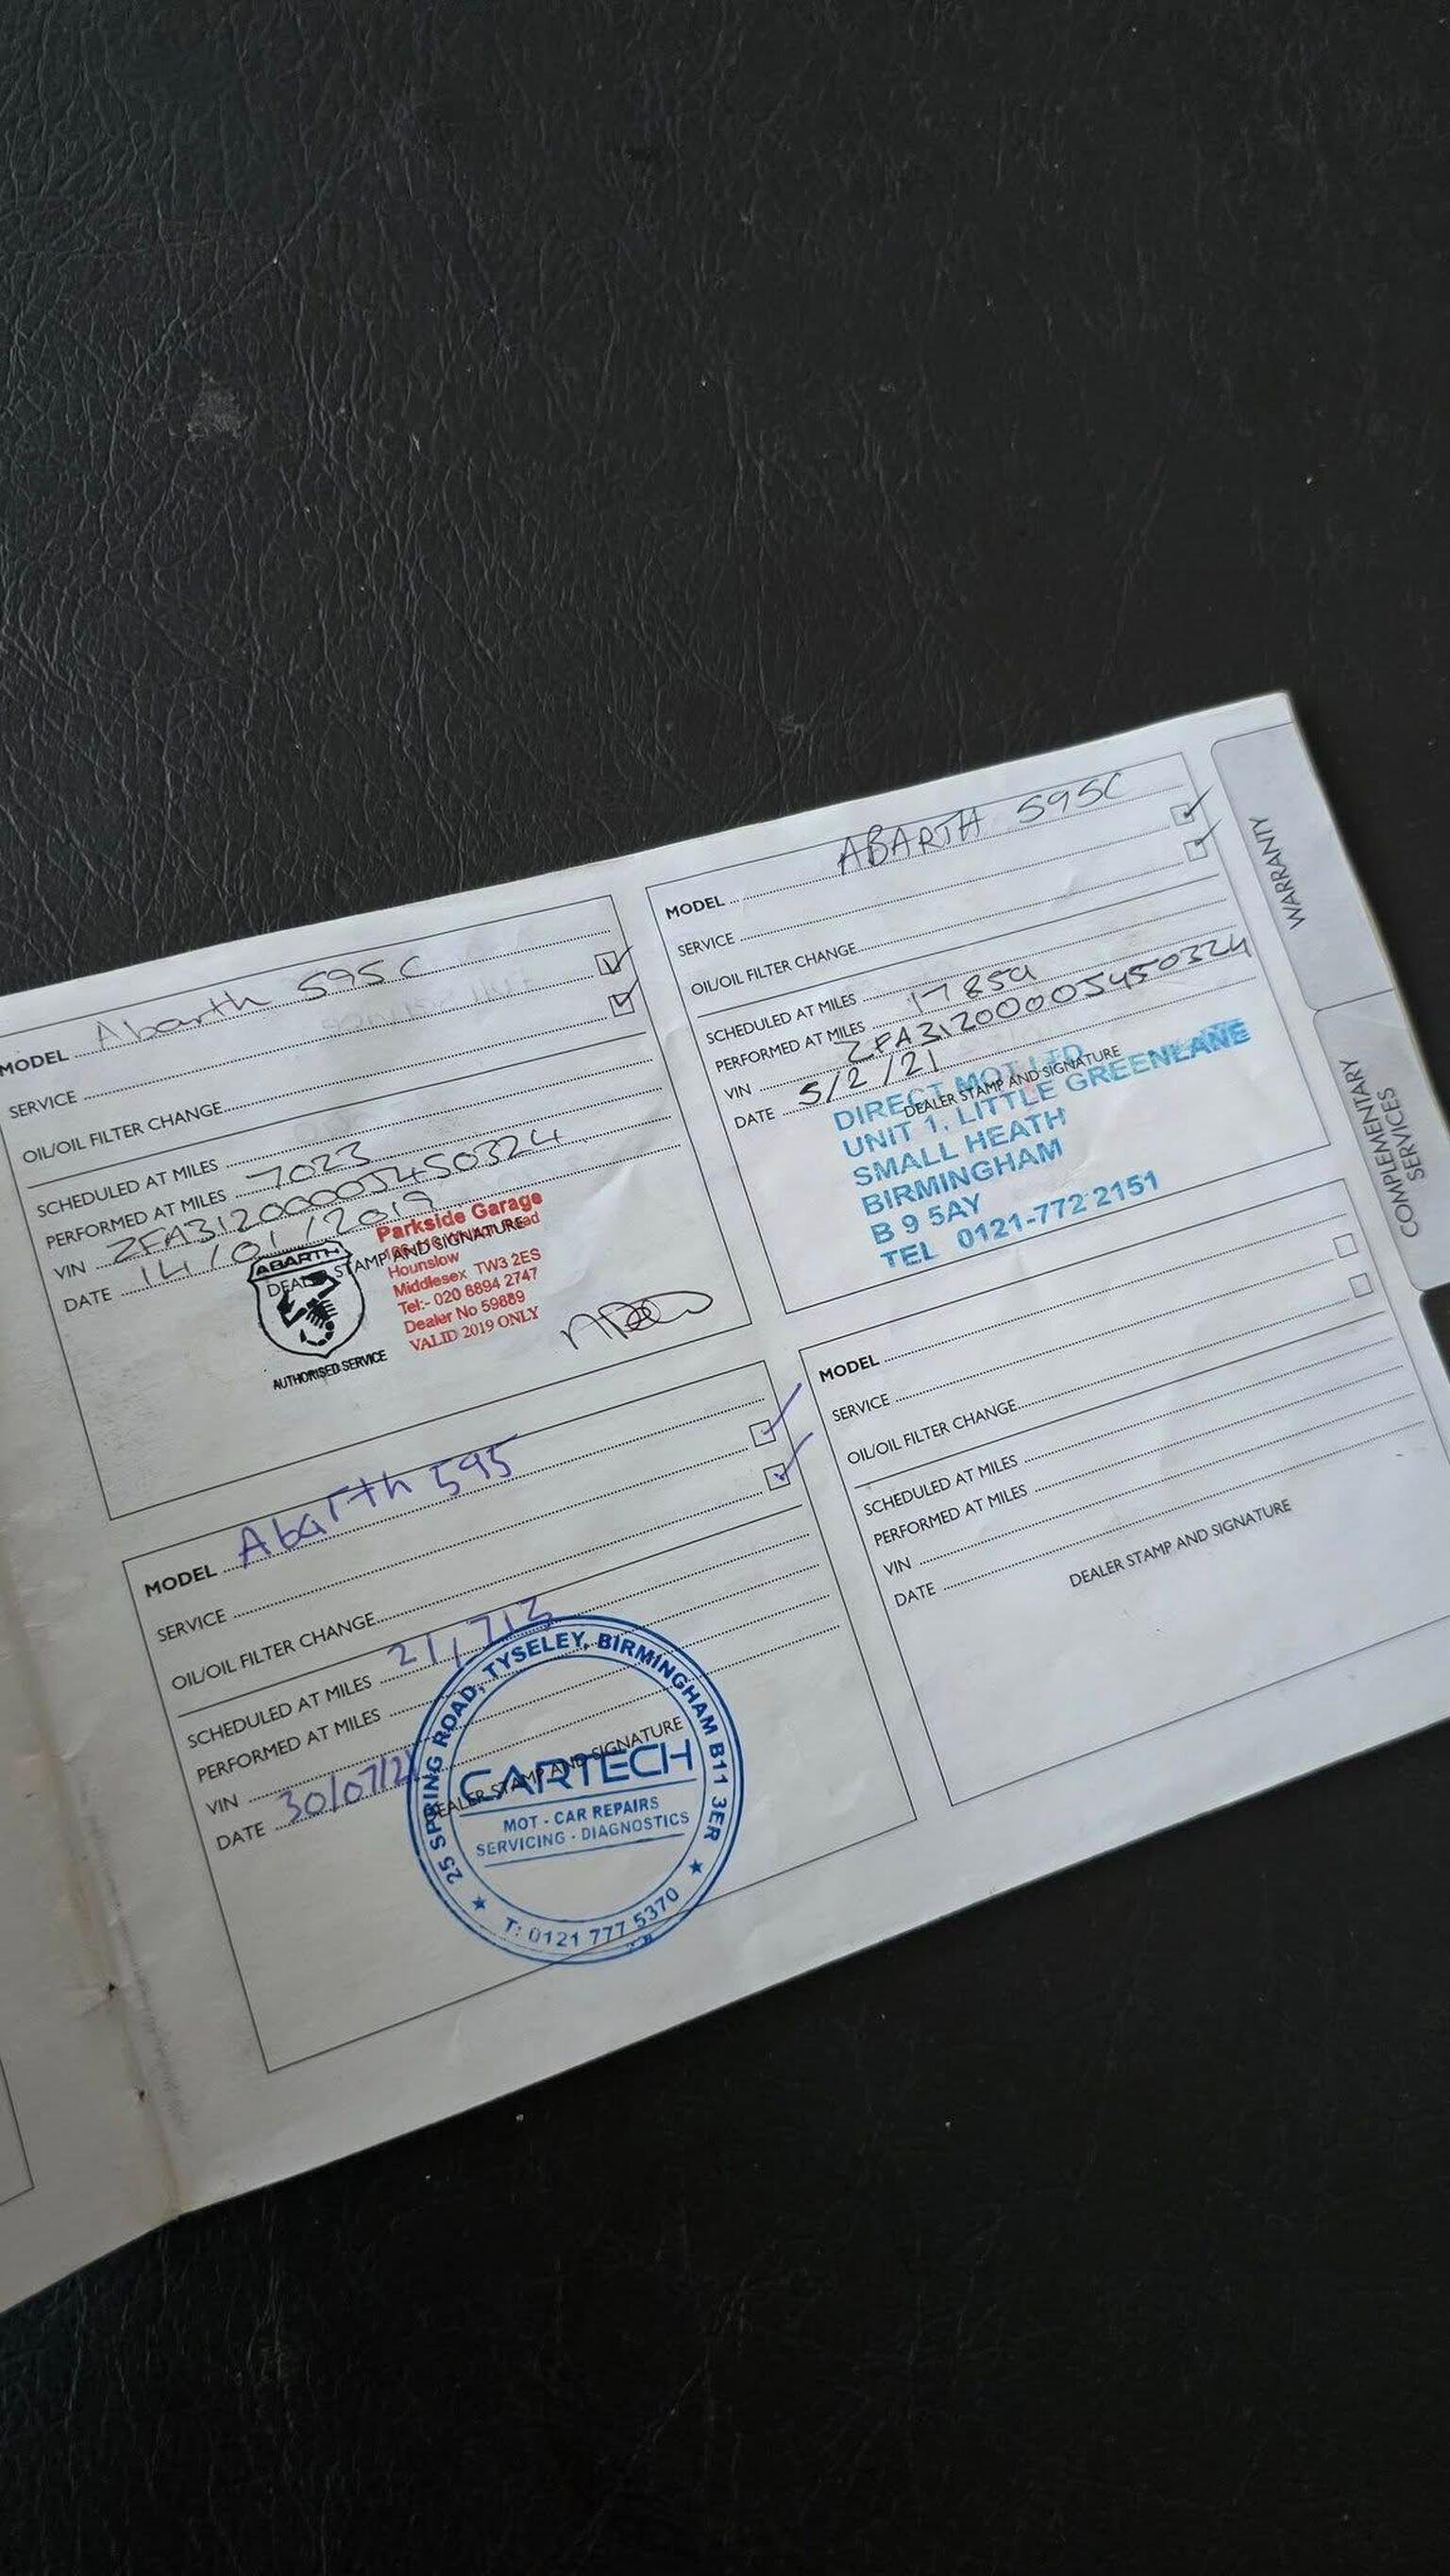 MODEL Abarth 595C
SERVICE
OIL/OIL FILTER CHANGE
SCHEDULED AT MILES
PERFORMED AT MILES 7023
VIN ZFA3120000J450324
DATE 14/01/2019
DEALER STAMP AND SIGNATURE
ABARTH
AUTHORISED SERVICE
Parkside Garage
Hounslow
Middlesex TW3 2ES
Tel:- 020 8894 2747
Dealer No 59889
VALID 2019 ONLY
MODEL ABARTH 595C
SERVICE
OIL/OIL FILTER CHANGE
SCHEDULED AT MILES
PERFORMED AT MILES 17859
VIN ZFA3120000J450324
DATE 5/2/21
DEALER STAMP AND SIGNATURE
DIRECT MOT LTD
UNIT 1, LITTLE GREENLANE
SMALL HEATH
BIRMINGHAM
B 9 5AY
TEL 0121-772 2151
MODEL Abarth 595
SERVICE
OIL/OIL FILTER CHANGE
SCHEDULED AT MILES 21,713
PERFORMED AT MILES
VIN
DATE 30/07/21
DEALER STAMP AND SIGNATURE
25 SPRING ROAD, TYSELEY, BIRMINGHAM B11 3ER
CARTECH
MOT - CAR REPAIRS
SERVICING - DIAGNOSTICS
T: 0121 777 5370
MODEL
SERVICE
OIL/OIL FILTER CHANGE
SCHEDULED AT MILES
PERFORMED AT MILES
VIN
DATE
DEALER STAMP AND SIGNATURE
WARRANTY
COMPLEMENTARY
SERVICES